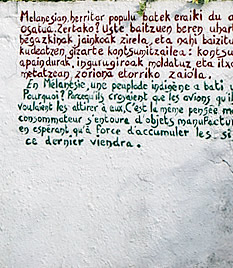 Melanesian, herritar populu batek eraiki du a
osatua. Zertako? Uste baitzuen beren uhart
hegazkinak jainkoak ziela, eta nahi baizitu
kudeatzen gizarte kontsumitzailea: kontsu
apaindurak, ingurugiroak moldatuz eta itxo
metatzean zoriona etorriko zaiola.
En Mélanésie, une peuplade indigène a bâti u
Pourquoi? Parcequ'ils croyaient que les avions qu'il
voulaient les attirer à eux. C'est la même pensée m
consommateur s'entoure d'objets manufactur
en espérant qu'à force d'accumuler les si
ce dernier viendra.